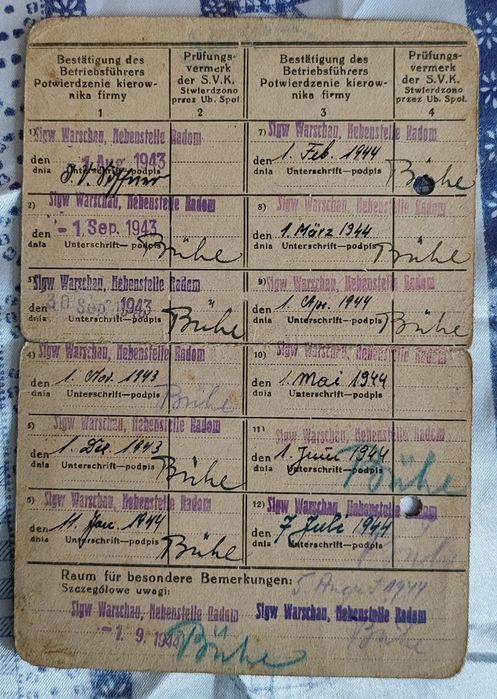 Bestätigung des
Betriebsführers
Potwierdzenie kierow-
nika firmy
1
Prüfungs-
vermerk
der S.V.K.
Stwierdzono
przez Ub. Społ.
2
Bestätigung des
Betriebsführers
Potwierdzenie kierow-
nika firmy
3
Prüfungs-
vermerk
der S.V.K.
Stwierdzono
przez Ub. Społ.
4
1) Slgw Warschau, Nebenstelle Radom
den 1. Aug. 1943
dnia Unterschrift—podpis
2) Slgw Warschau, Nebenstelle Radom
den - 1. Sep. 1943
dnia Unterschrift—podpis Bühe
3) Slgw Warschau, Nebenstelle Radom
den 30. Sep. 1943
dnia Unterschrift—podpis Bühe
4) Slgw Warschau, Nebenstelle Radom
den 1. Nov. 1943
dnia Unterschrift—podpis Bühe
5) Slgw Warschau, Nebenstelle Radom
den 1. Dez. 1943
dnia Unterschrift—podpis Bühe
6) Slgw Warschau, Nebenstelle Radom
den 11. Jan. 1944
dnia Unterschrift—podpis Bühe
7) Slgw Warschau, Nebenstelle Radom
den 1. Feb. 1944
dnia Unterschrift—podpis Bühe
8) Slgw Warschau, Nebenstelle Radom
den 1. März 1944
dnia Unterschrift—podpis Bühe
9) Slgw Warschau, Nebenstelle Radom
den 1. Apr. 1944
dnia Unterschrift—podpis Bühe
10) Slgw Warschau, Nebenstelle Radom
den 1. Mai 1944
dnia Unterschrift—podpis
11) Slgw Warschau, Nebenstelle Radom
den 1. Juni 1944
dnia Unterschrift—podpis Bühe
12) Slgw Warschau, Nebenstelle Radom
den 7. Juli 1944
dnia Unterschrift—podpis
Raum für besondere Bemerkungen:
Szczegółowe uwagi:
5. August 1944
Slgw Warschau, Nebenstelle Radom
- 1. 9. 1944 Bühe
Slgw Warschau, Nebenstelle Radom
Bühe